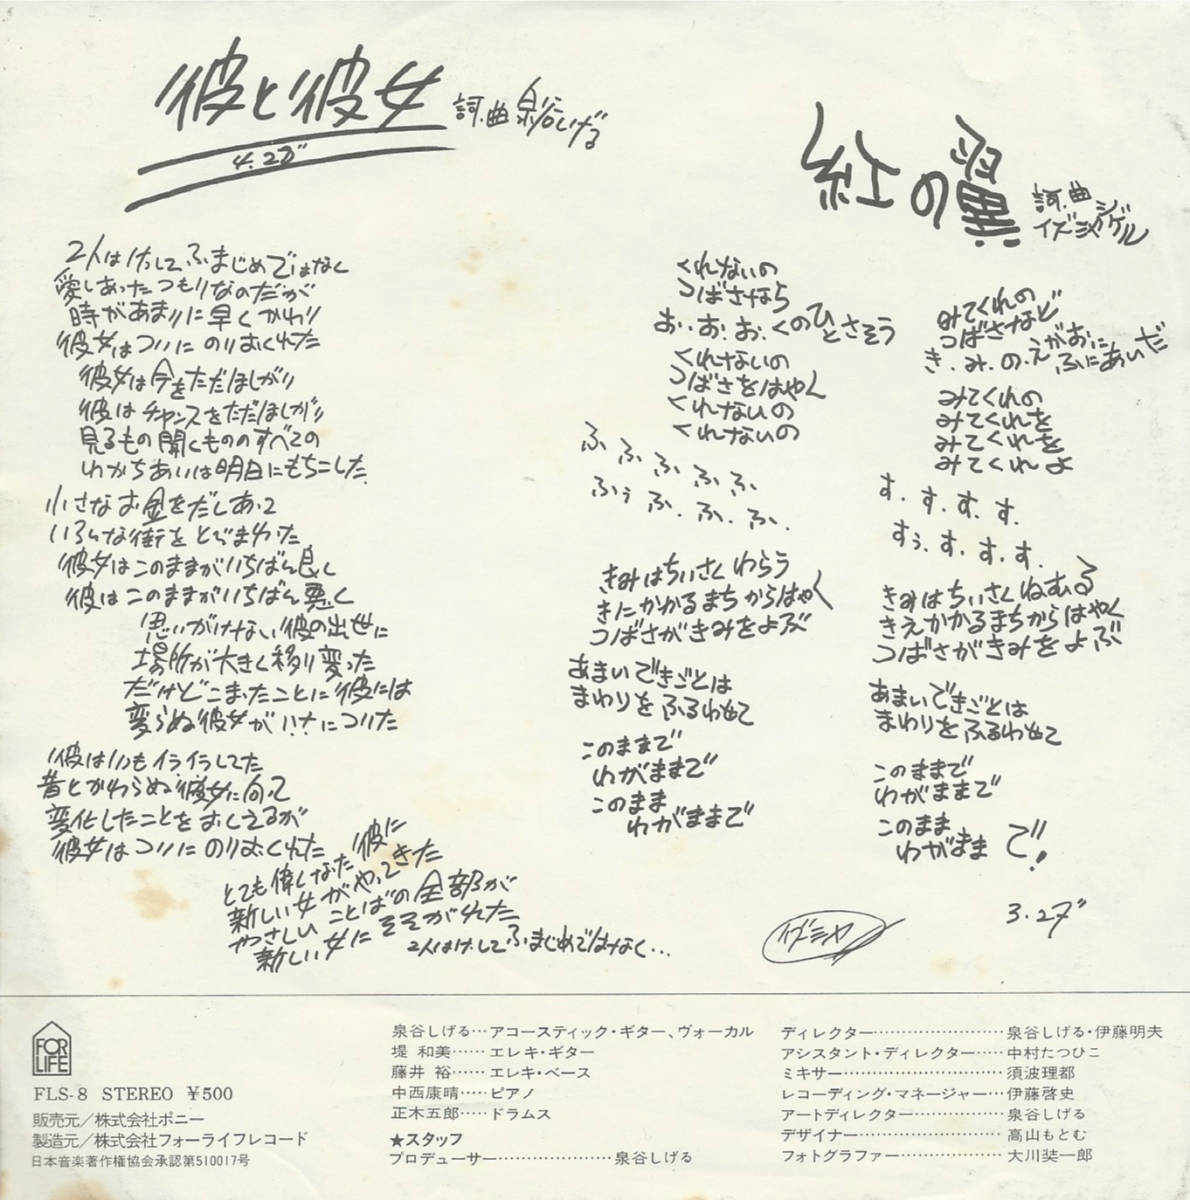 彼と彼女
詞.曲 泉谷しげる
4.27"
2人はけっしてふまじめではなく
愛しあったつもりなのだが
時があまりに早くかわり
彼女はついにのりおくれた
彼女は今をただほしがり
彼はチャンスをただほしがり
見るもの聞くもののすべての
わかちあいは明日にもちこした
小さなお金をだしあって
いろんな街をとびまわった
彼女はこのままがいちばん良く
彼はこのままがいちばん悪く
思いがけない彼の出世に
場所が大きく移り変った
だけどこまったことに彼には
変らぬ彼女が鼻についた
彼はいつもイライラしてた
昔とかわらぬ彼女に向って
変化したことをおしえるが
彼女はついにのりおくれた
とても偉くなった彼に
新しい女がやってきた
やさしいことばの全部が
新しい女にそそがれた
2人はけしてふまじめではなく...
紅の翼
詞.曲
イズミヤシゲル
くれないの
つばさなら
お.お.お.くのひとさそう
くれないの
つばさをはやく
くれないの
くれないの
ふふふふふ
ふぅふ.ふ.ふ.
きみはちいさくわらう
きにかかるまちからはやく
つばさがきみをよぶ
あまいできごとは
まわりをふるわせて
このままで
わがままで
このまま
わがままで
みてくれの
つばさなど
き.み.の.えがおにふにあいだ
みてくれの
みてくれを
みてくれを
みてくれよ
す.す.す.す.
すぅ.す.す.す.
きみはちいさくねむる
きえかかるまちからはやく
つばさがきみをよぶ
あまいできごとは
まわりをふるわせて
このままで
わがままで
このまま
わがままで!
3.27"
イズミヤ
FOR
LIFE
FLS-8 STEREO ¥500
販売元/株式会社ポニー
製造元/株式会社フォーライフレコード
日本音楽著作権協会承認第510017号
泉谷しげる…アコースティック・ギター、ヴォーカル
堤 和美……エレキ・ギター
藤井 裕……エレキ・ベース
中西康晴……ピアノ
正木五郎……ドラムス
★スタッフ
プロデューサー…………………泉谷しげる
ディレクター……………………泉谷しげる・伊藤明夫
アシスタント・ディレクター……中村たつひこ
ミキサー…………………………須波理都
レコーディング・マネージャー…伊藤啓史
アートディレクター……………泉谷しげる
デザイナー………………………高山もとむ
フォトグラファー………………大川奘一郎